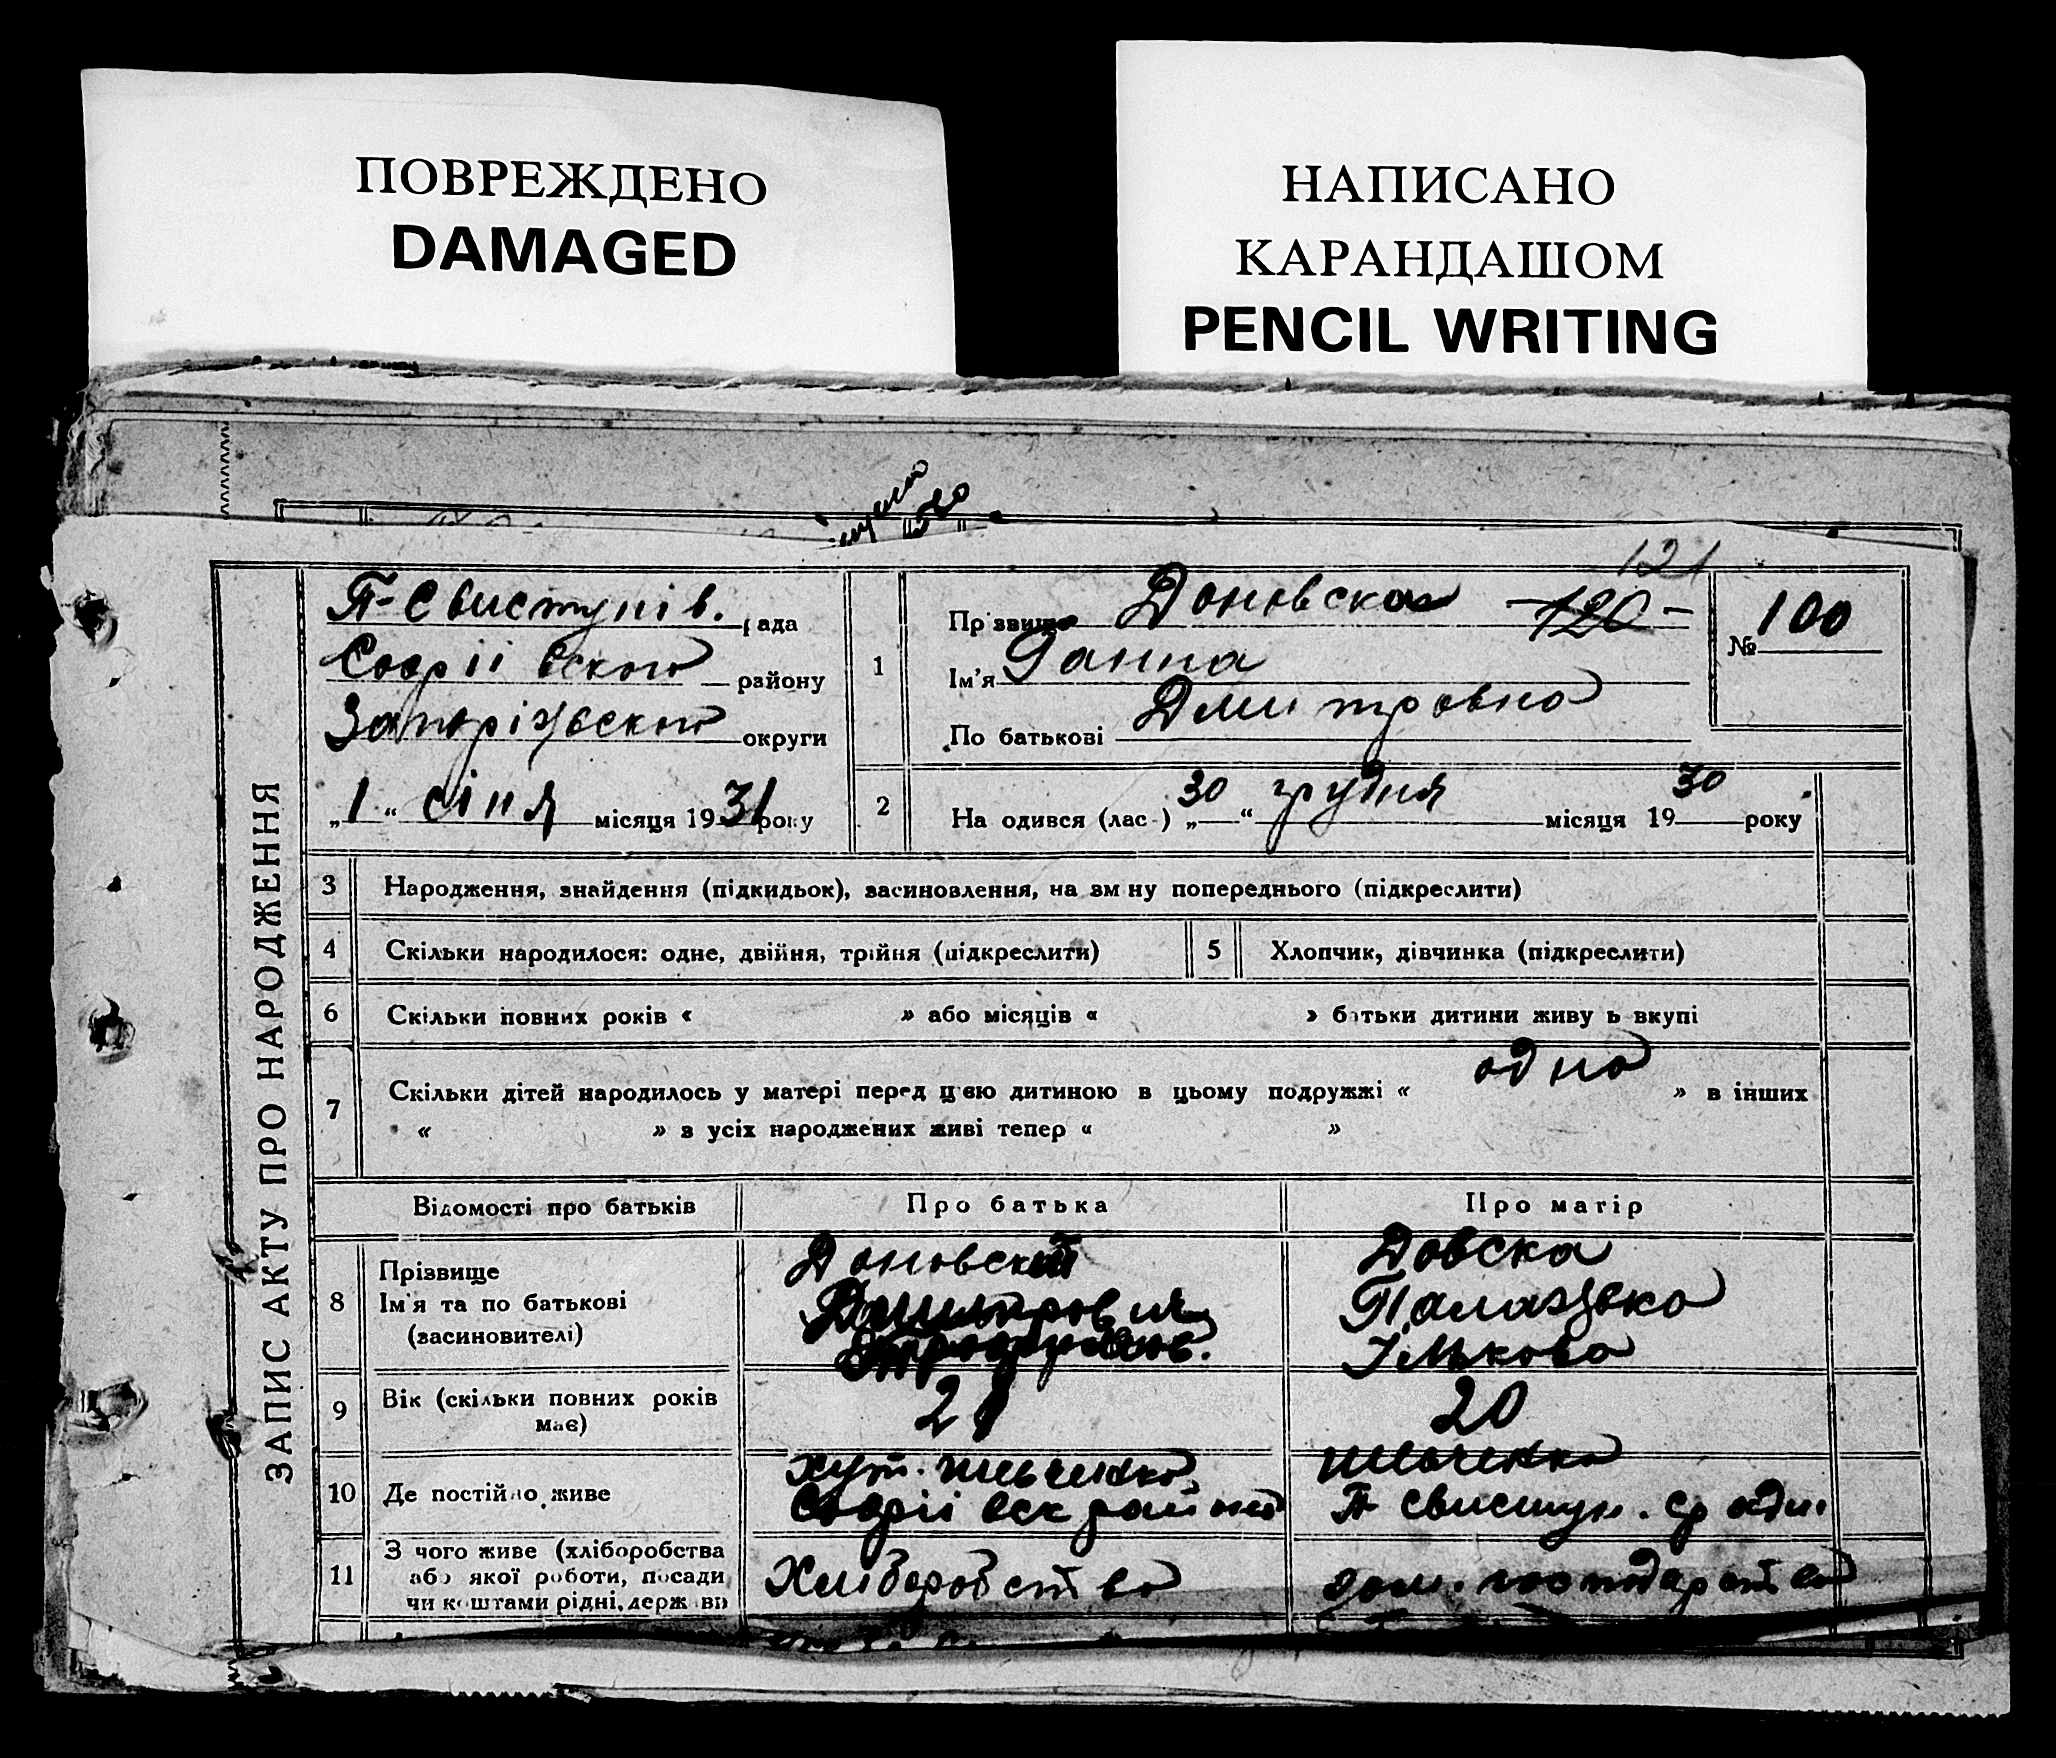 ПОВРЕЖДЕНО
DAMAGED
НАПИСАНО
КАРАНДАШОМ
PENCIL WRITING
ЗАПИС АКТУ ПРО НАРОДЖЕННЯ
П-Свиступів. рада
Софіївского району
Запоріжского округи
„1“ січня місяця 1931 року
121
1 Прізвище Доновска -120-
Ім'я Ганна
По батькові Дмитровна
№ 100
2 На одився (лас-) „30“ грудня місяця 1930 року
3 Народження, знайдення (підкидьок), засиновлення, на зм ну попереднього (підкреслити)
4 Скільки народилося: одне, двійня, трійня (підкреслити)
5 Хлопчик, дівчинка (підкреслити)
6 Скільки повних років « » або місяців « » батьки дитини живу ь вкупі
7 Скільки дітей народилось у матері перед цією дитиною в цьому подружжі « одно » в інших
« » з усіх народжених живі тепер « »
Відомості про батьків Про батька Про матір
8 Прізвище Доновский Довска
Ім'я та по батькові
(засиновителі) Ількова
9 Вік (скільки повних років має) 21 20
10 Де постійно живе хут. Шевченко Шевченко
Софіівск района П Свиступ.
11 З чого живе (хліборобства
або якої роботи, посади Хліборобство дом. господарство
чи коштами рідні, держ ви